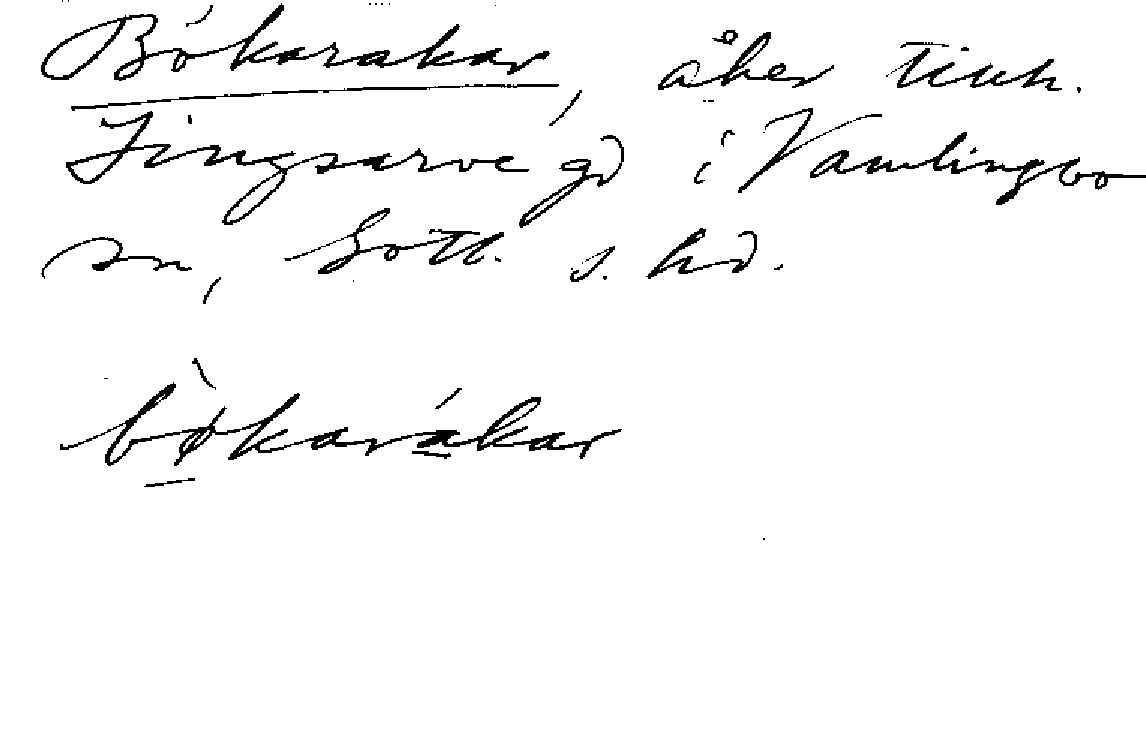 Bókarakar, åker tillh.
Fingsarve gd i Vamlingbo
sn, Gotl. s. hd.
bø̀karákar